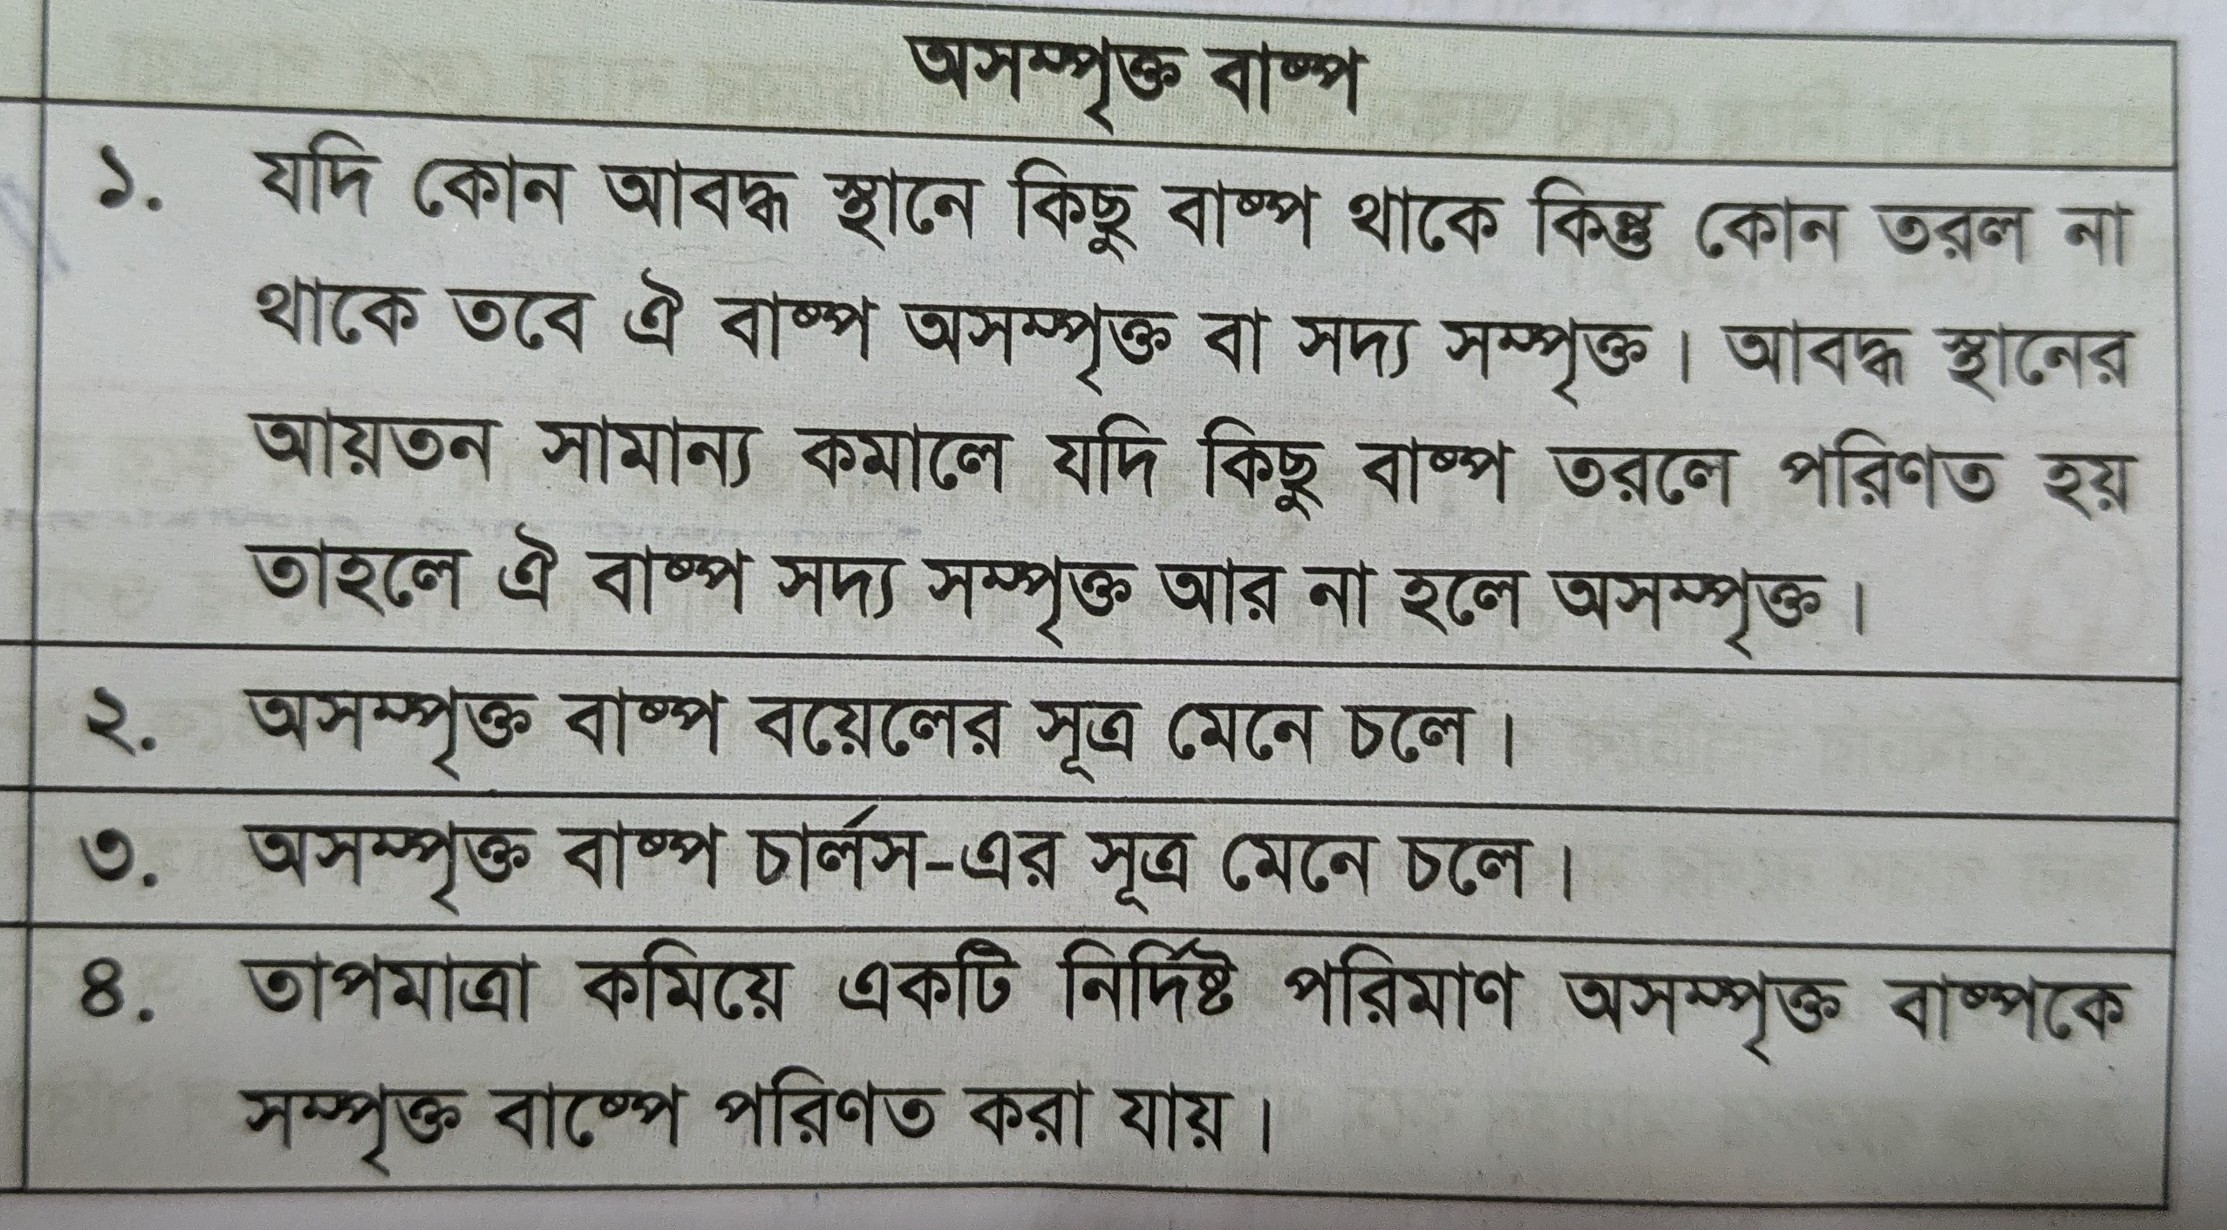 অসম্পৃক্ত বাষ্প
১. যদি কোন আবদ্ধ স্থানে কিছু বাষ্প থাকে কিন্তু কোন তরল না
থাকে তবে ঐ বাষ্প অসম্পৃক্ত বা সদ্য সম্পৃক্ত। আবদ্ধ স্থানের
আয়তন সামান্য কমালে যদি কিছু বাষ্প তরলে পরিণত হয়
তাহলে ঐ বাষ্প সদ্য সম্পৃক্ত আর না হলে অসম্পৃক্ত।
২. অসম্পৃক্ত বাষ্প বয়েলের সূত্র মেনে চলে।
৩. অসম্পৃক্ত বাষ্প চার্লস-এর সূত্র মেনে চলে।
৪. তাপমাত্রা কমিয়ে একটি নির্দিষ্ট পরিমাণ অসম্পৃক্ত বাষ্পকে
সম্পৃক্ত বাষ্পে পরিণত করা যায়।